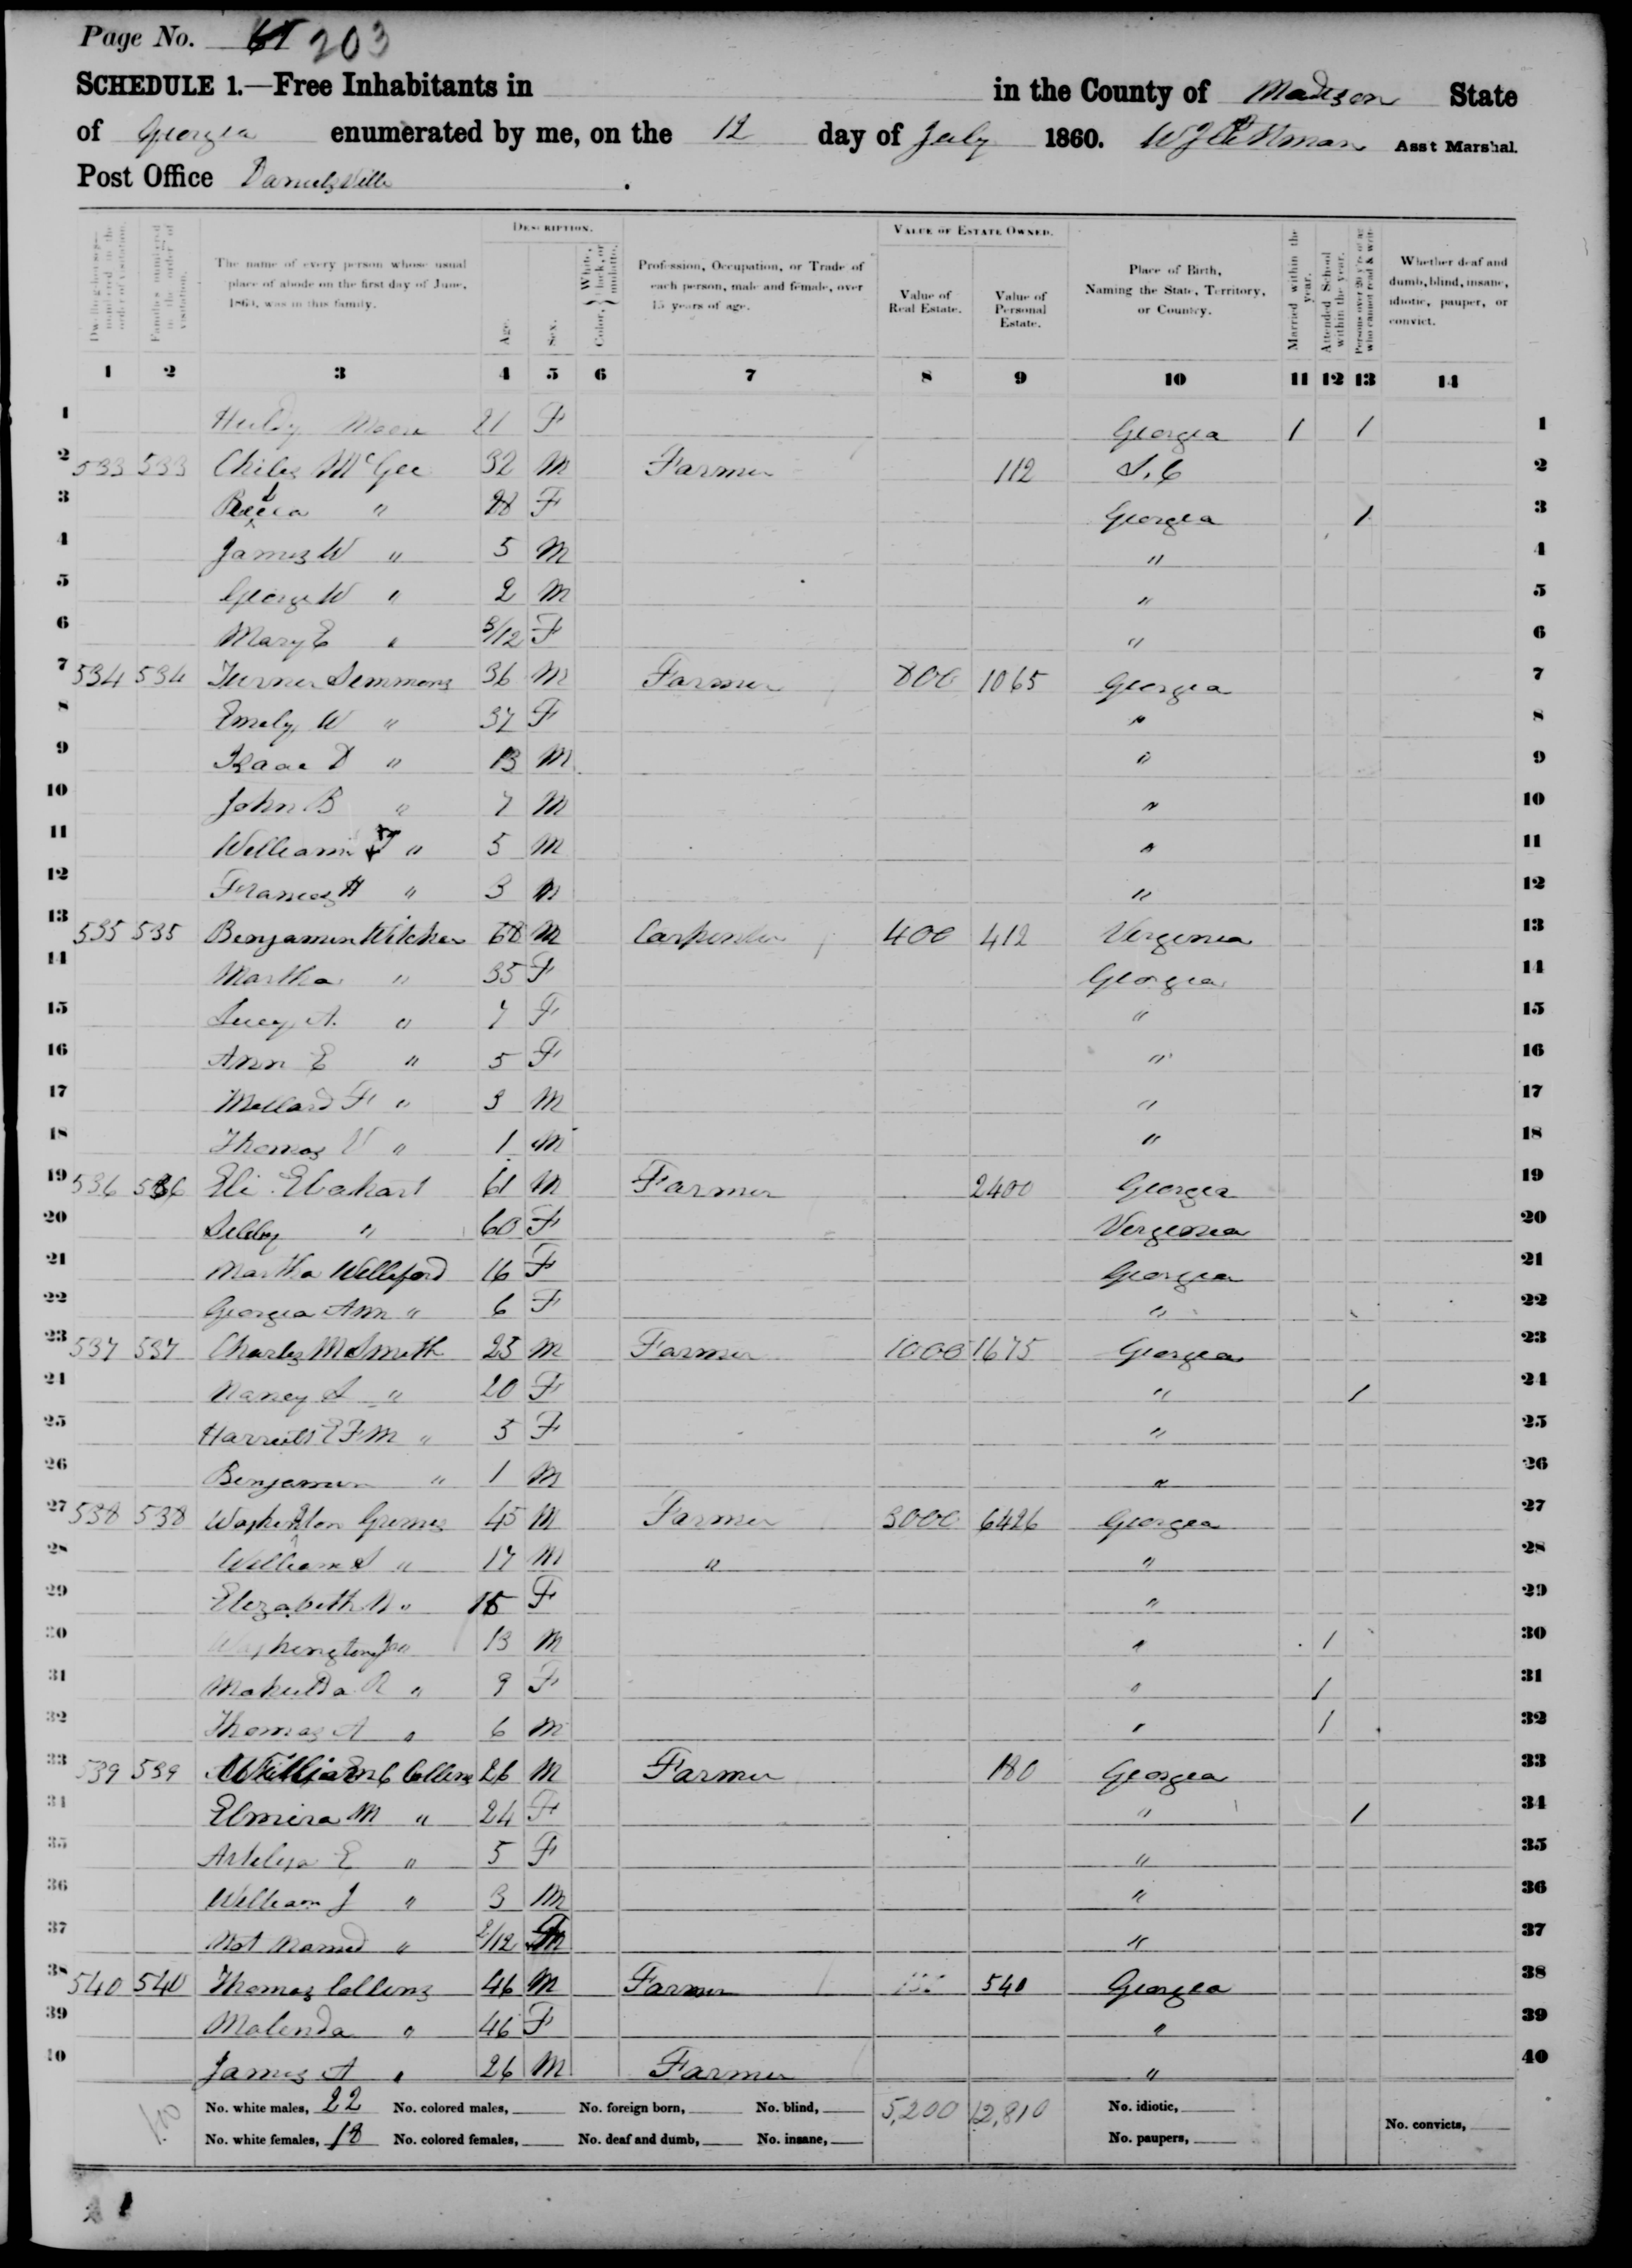 Page No. 203
SCHEDULE 1.—Free Inhabitants in in the County of Madison State
of Georgia enumerated by me, on the 12 day of July 1860. Asst Marshal.
Post Office Danielsville
DESCRIPTION. VALUE OF ESTATE OWNED.
Dwelling-houses numbered in the order of visitation. Families numbered in the order of visitation. The name of every person whose usual place of abode on the first day of June, 1860, was in this family. Age. Sex. Color, White, black, or mulatto. Profession, Occupation, or Trade of each person, male and female, over 15 years of age. Value of Real Estate. Value of Personal Estate. Place of Birth, Naming the State, Territory, or Country. Married within the year. Attended School within the year. Persons over 20 y'rs of age who cannot read & write. Whether deaf and dumb, blind, insane, idiotic, pauper, or convict.
1 2 3 4 5 6 7 8 9 10 11 12 13 14
1 Huldy Moon 21 F Georgia 1 1 1
2 533 533 Chiles McGee 32 M Farmer 112 S.C 2
3 " 28 F Georgia 1 3
4 James W " 5 M " 4
5 George W " 2 M " 5
6 Mary E " 3/12 F " 6
7 534 534 Turner Simmons 36 M Farmer 800 1065 Georgia 7
8 Emely W " 37 F " 8
9 Isaac D " 13 M " 9
10 John B " 7 M " 10
11 William T " 5 M " 11
12 Frances H " 3 M " 12
13 535 535 Benjamin Witcher 68 M Carpenter 400 412 Virginia 13
14 Martha " 35 F Georgia 14
15 Lucy A. " 7 F " 15
16 Ann E " 5 F " 16
17 Millard F " 3 M " 17
18 Thomas V " 1 M " 18
19 536 536 Eli Eberhart 61 M Farmer 2400 Georgia 19
20 " 60 F Virginia 20
21 Martha Williford 16 F Georgia 21
22 Georgia Ann " 6 F " 22
23 537 537 Charles M Smith 25 M Farmer 1000 1675 Georgia 23
24 Nancy S " 20 F " 1 24
25 Harriett E F M " 3 F " 25
26 Benjamin " 1 M " 26
27 538 538 Washington Grimes 45 M Farmer 3000 6426 Georgia 27
28 William S " 17 M " " 28
29 Elizabeth N " 15 F " 29
30 Washington Jr " 13 M " 1 30
31 R " 9 F " 1 31
32 Thomas A " 6 M " 1 32
33 539 539 William C Collins 26 M Farmer 180 Georgia 33
34 Elmira M " 24 F " 1 34
35 E " 5 F " 35
36 William J " 3 M " 36
37 Not Named " 2/12 " 37
38 540 540 Thomas Collins 46 M Farmer 540 Georgia 38
39 Malinda " 46 F " 39
40 James A " 26 M Farmer " 40
No. white males, 22 No. colored males, No. foreign born, No. blind, 5,200 12,810 No. idiotic,
No. white females, 18 No. colored females, No. deaf and dumb, No. insane, No. paupers, No. convicts,